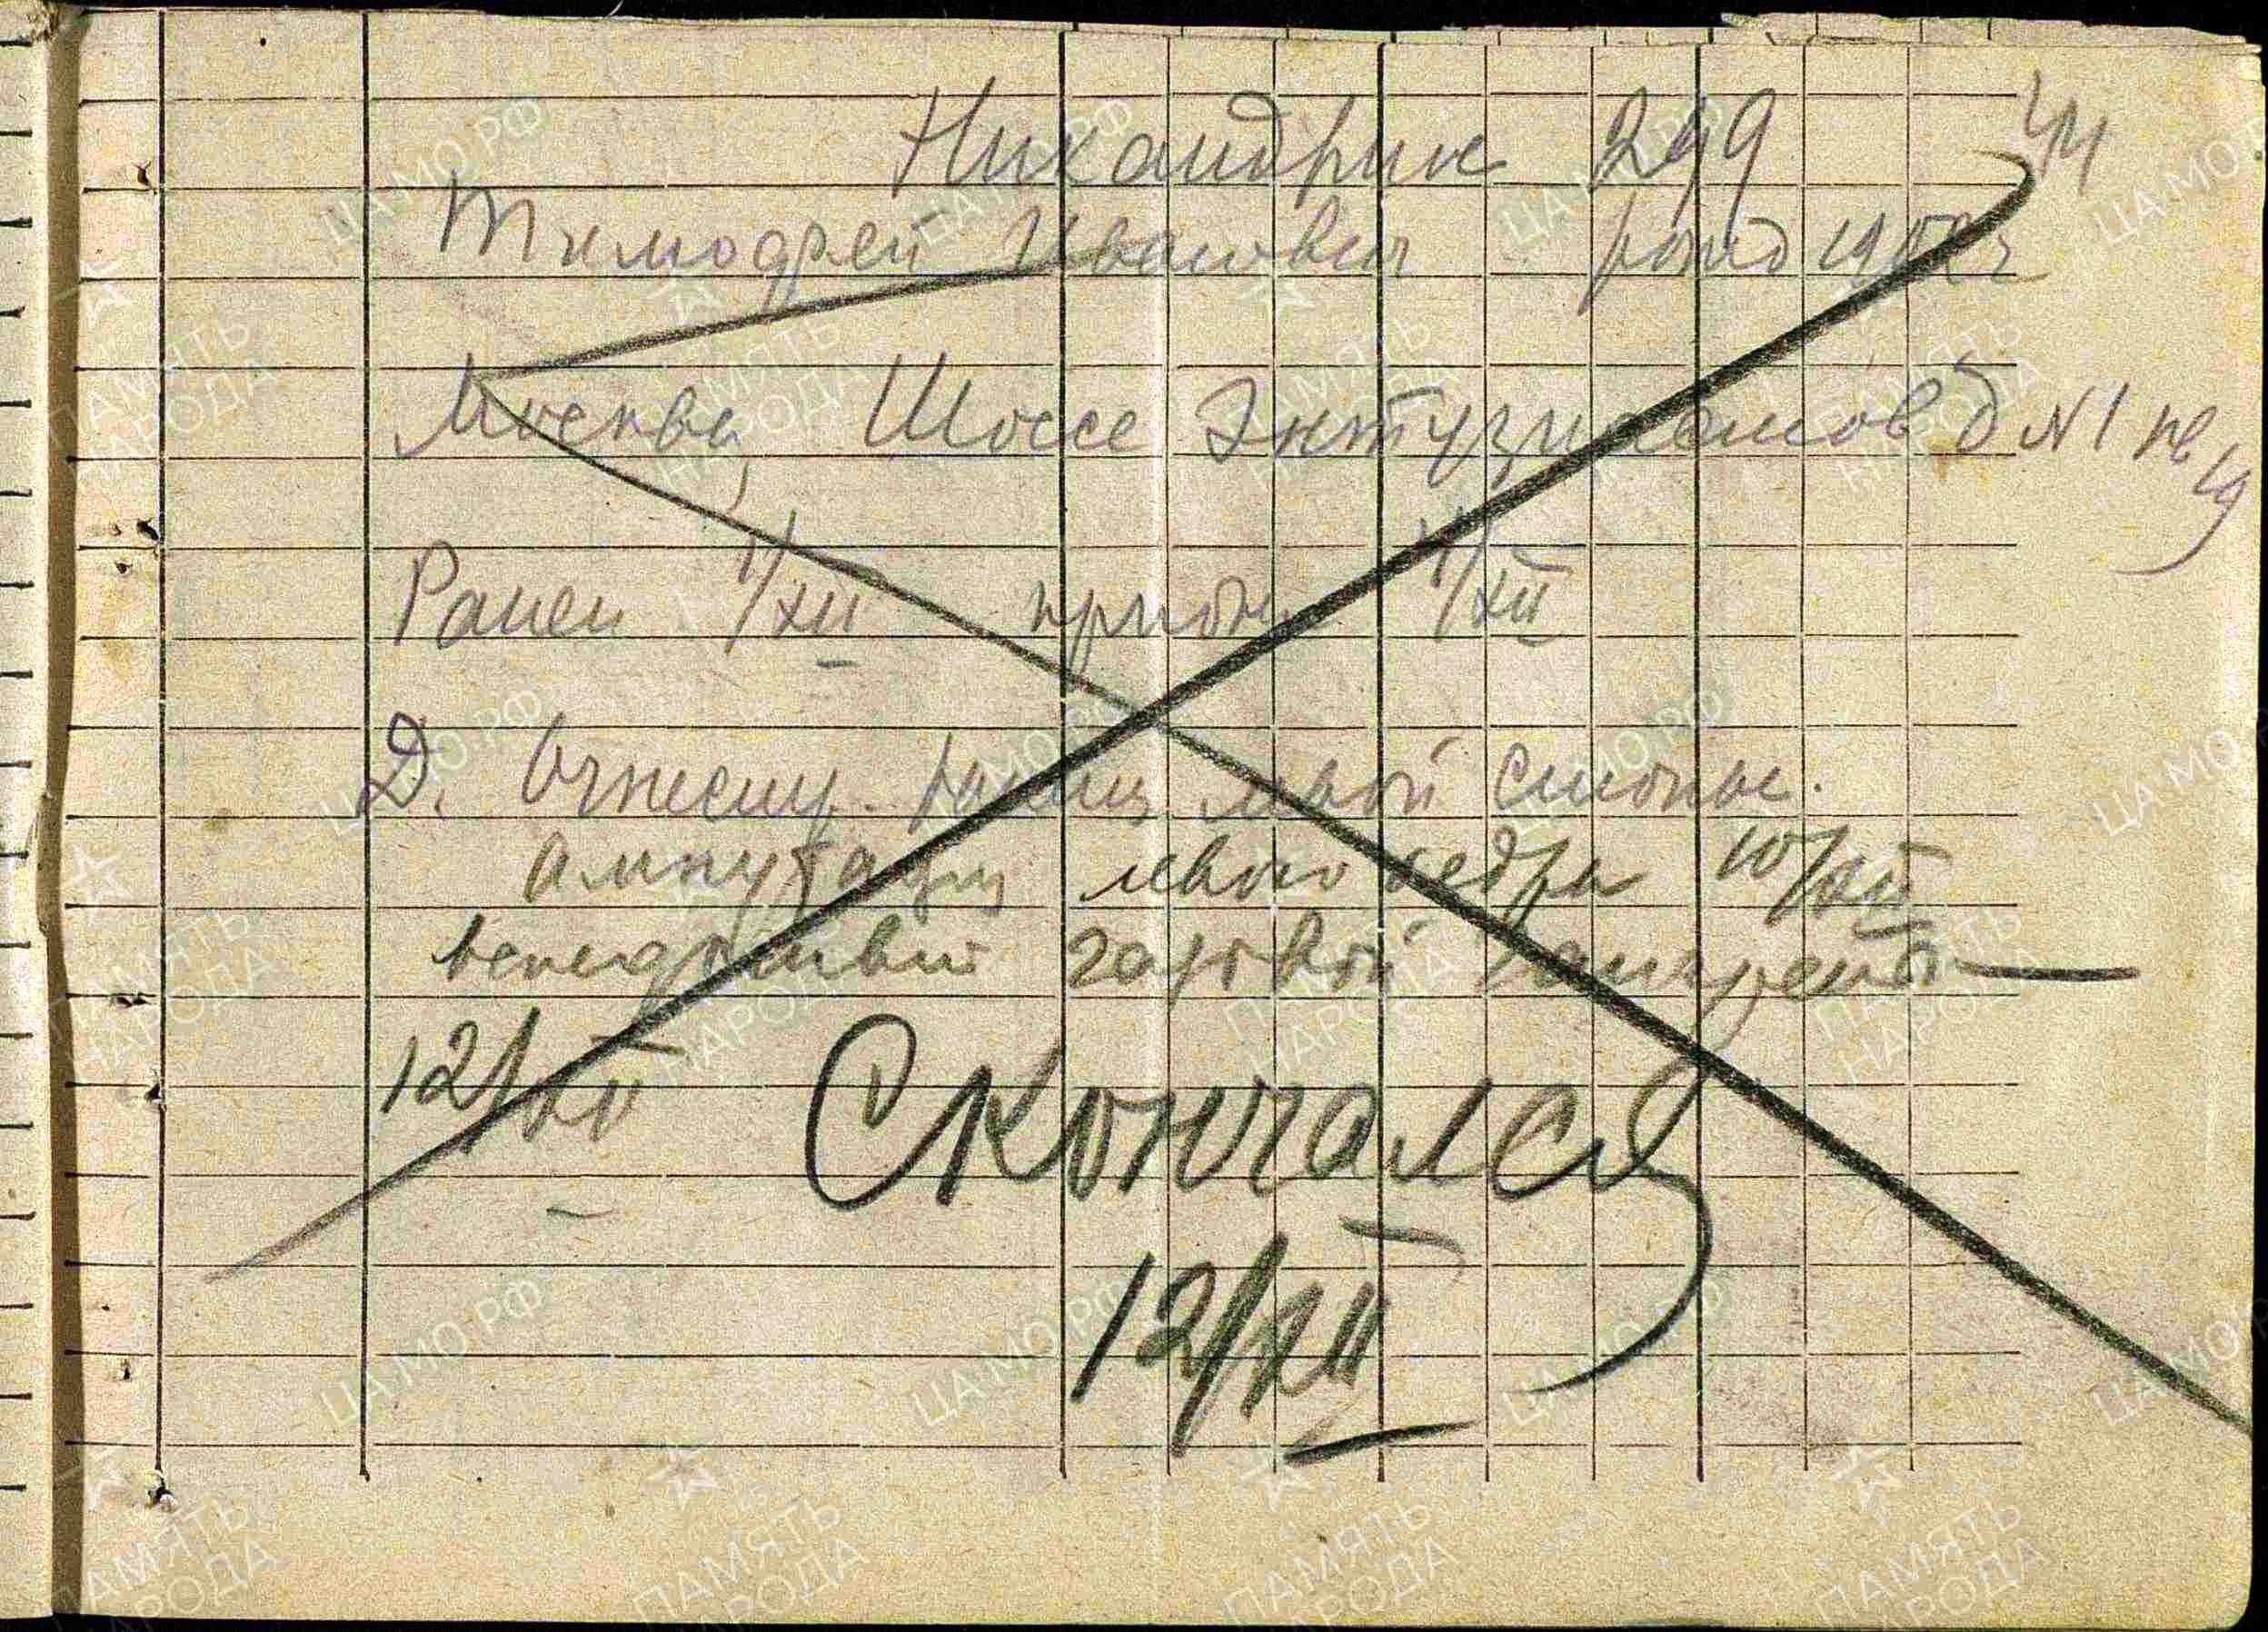 Никандрик 299
Тимофей Иванович рожд 1902г
Москва, Шоссе Энтузиасмов д N 1 кв 19
Ранен 1/XII прибыл 4/XII
Д. Огнестр. ранен левой стопы.
ампутация левого бедра 10/XII
вследствии газовой гангрены
12/XII Скончался
12/XII